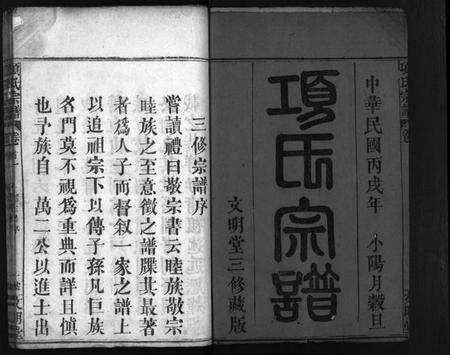 中華民國丙戌年 小陽月穀旦
項氏宗譜
文明堂三修藏版
三修宗譜序
嘗讀禮曰敬宗書云睦族敬宗
睦族之至意徵之譜牒其最著
者爲人子而督叙一家之譜上
以追祖宗下以傳子孫凡巨族
名門莫不視爲重典而詳且慎
也予族自 萬二公以進士出